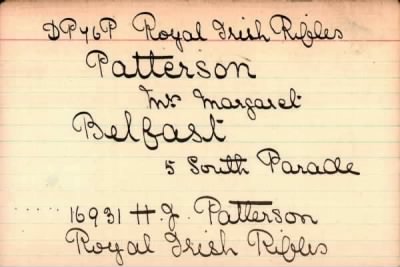 DP46P Royal Irish Rifles
Patterson
Mrs Margaret
Belfast
5 South Parade
..... 16931 H.J. Patterson
Royal Irish Rifles